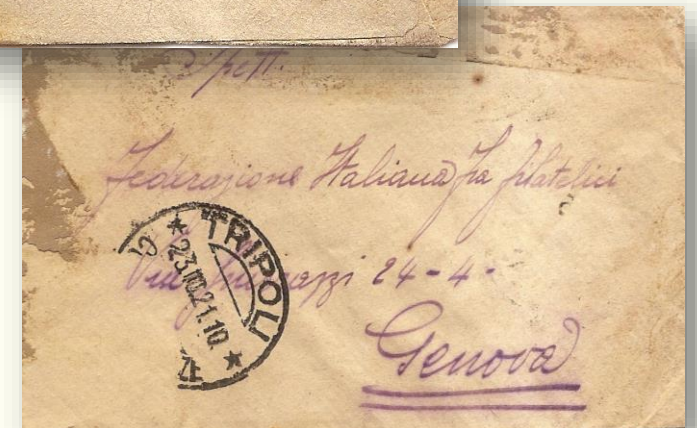 Spett.
Federazione Italiana fra filatelici
Via 24-4-
Genova
TRIPOLI